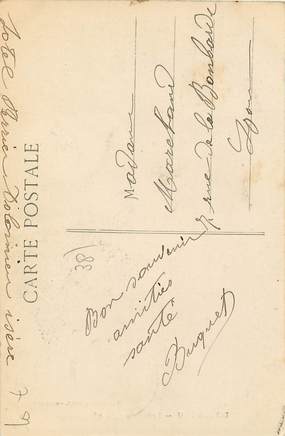 CARTE POSTALE
Hotel Perrier Dolomieu isère
Bon souvenir
amitiés
santé
Madame
Marchand
7 rue de la Bombarde
Lyon
38